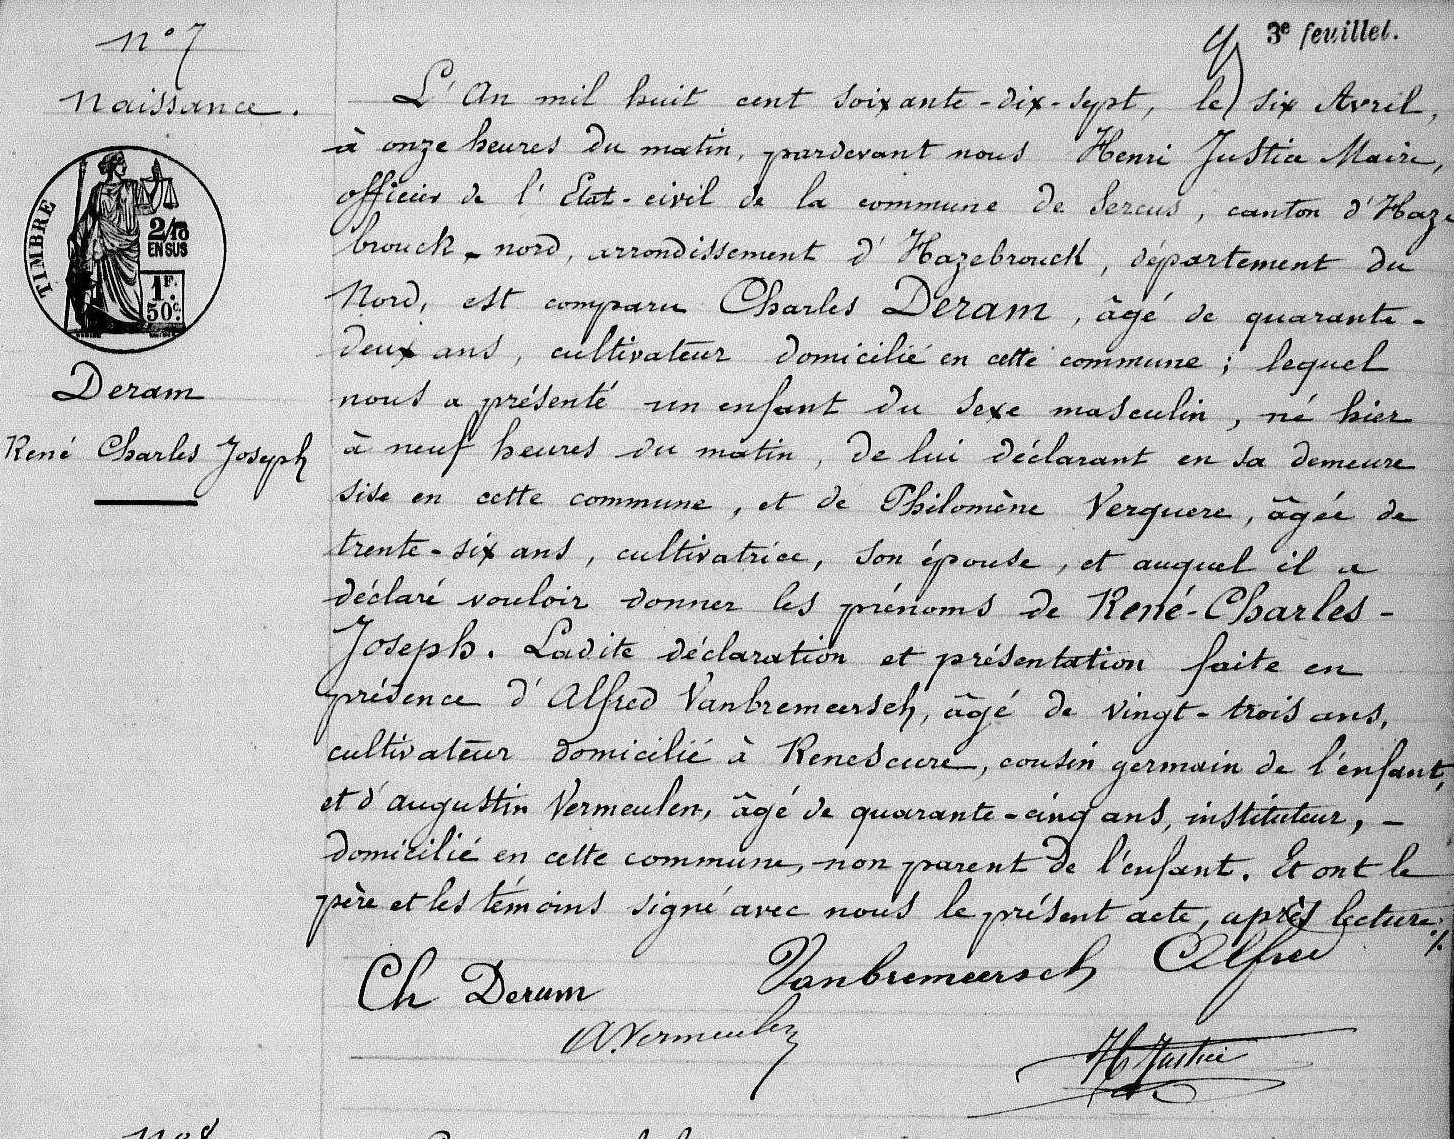 3e feuillet.
N° 7
Naissance.
TIMBRE
2/10
EN SUS
1F.
50c.
Deram
René Charles Joseph
L'An mil huit cent soixante-dix-sept, le six Avril,
à onze heures du matin, pardevant nous Henri Justice Maire,
officier de l'Etat-civil de la commune de Sercus, canton d'Haze
brouck-nord, arrondissement d'Hazebrouck, département du
Nord, est comparu Charles Deram, âgé de quarante-
deux ans, cultivateur domicilié en cette commune ; lequel
nous a présenté un enfant du sexe masculin, né hier
à neuf heures du matin, de lui déclarant en sa demeure
sise en cette commune, et de Philomène Verquere, âgée de
trente-six ans, cultivatrice, son épouse, et auquel il a
déclaré vouloir donner les prénoms de René-Charles-
Joseph. Ladite déclaration et présentation faite en
présence d'Alfred Vanbremeersch, âgé de vingt-trois ans,
cultivateur domicilié à Renescure, cousin germain de l'enfant,
et d'augustin Vermeulen, âgé de quarante-cinq ans, instituteur, -
domicilié en cette commune, non parent de l'enfant. Et ont le
père et les témoins signé avec nous le présent acte, après lecture ./.
Ch Deram
Vanbremeersch Alfred
A. Vermeulen
H Justice
N° 8